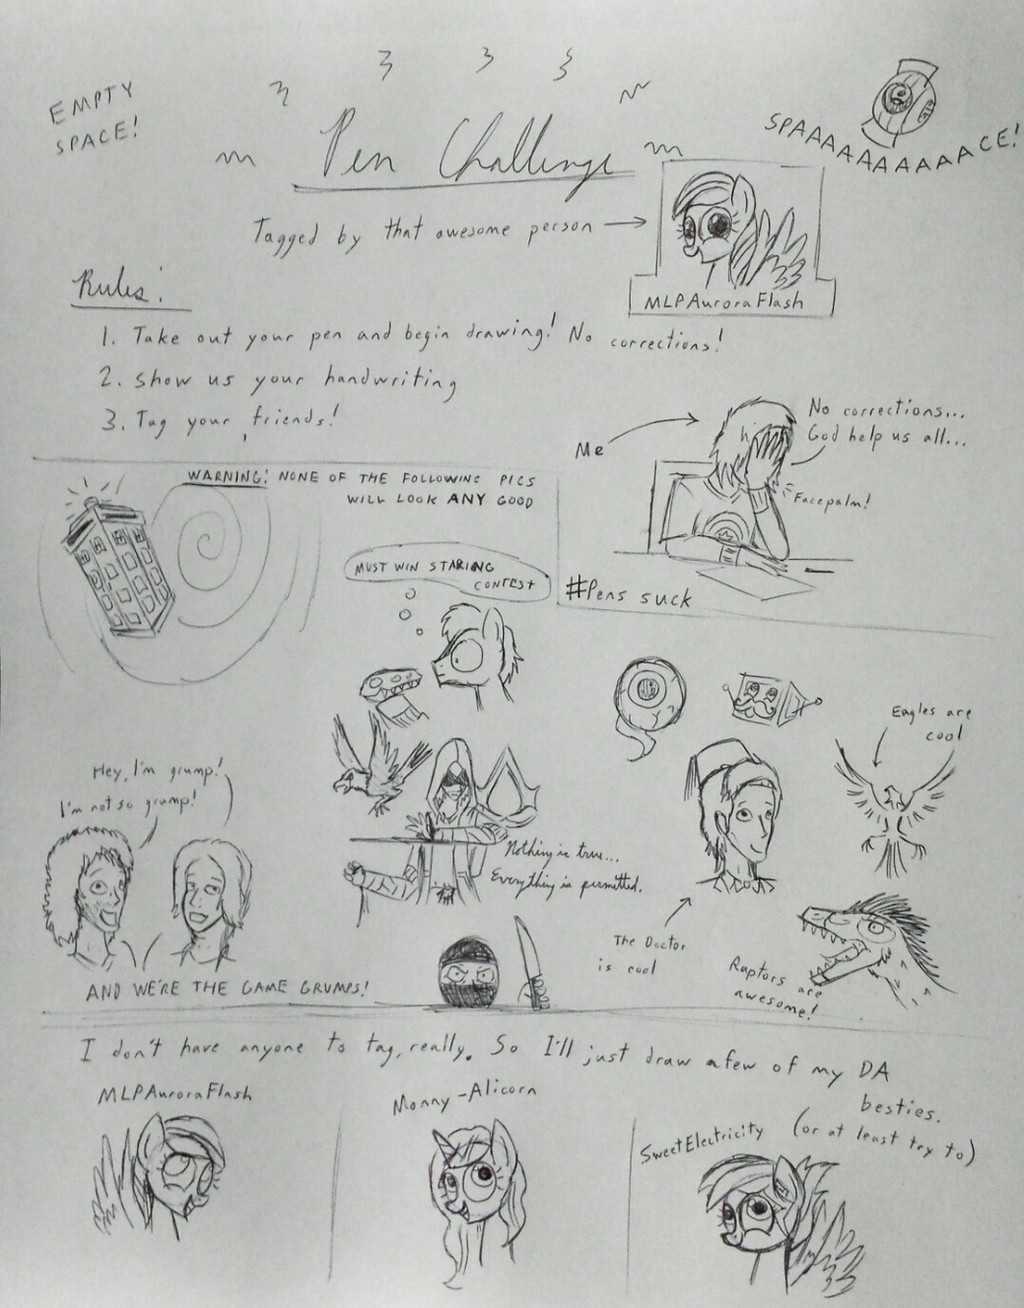 EMPTY
SPACE!
Pen Challenge
SPAAAAAAAAAAACE!
Tagged by that awesome person
MLPAuroraFlash
Rules:
1. Take out your pen and begin drawing! No corrections!
2. Show us your handwriting
3. Tag your friends!
Me
No corrections...
God help us all...
Facepalm!
#Pens suck
WARNING! NONE OF THE FOLLOWING PICS
WILL LOOK ANY GOOD
MUST WIN STARING
CONTEST
Eagles are
cool
Hey, I'm grump!
I'm not so grump!
Nothing is true...
Everything is permitted.
The Doctor
is cool
Raptors are
awesome!
AND WE'RE THE GAME GRUMPS!
I don't have anyone to tag, really. So I'll just draw a few of my DA
besties.
(or at least try to)
MLPAuroraFlash
Monny-Alicorn
SweetElectricity